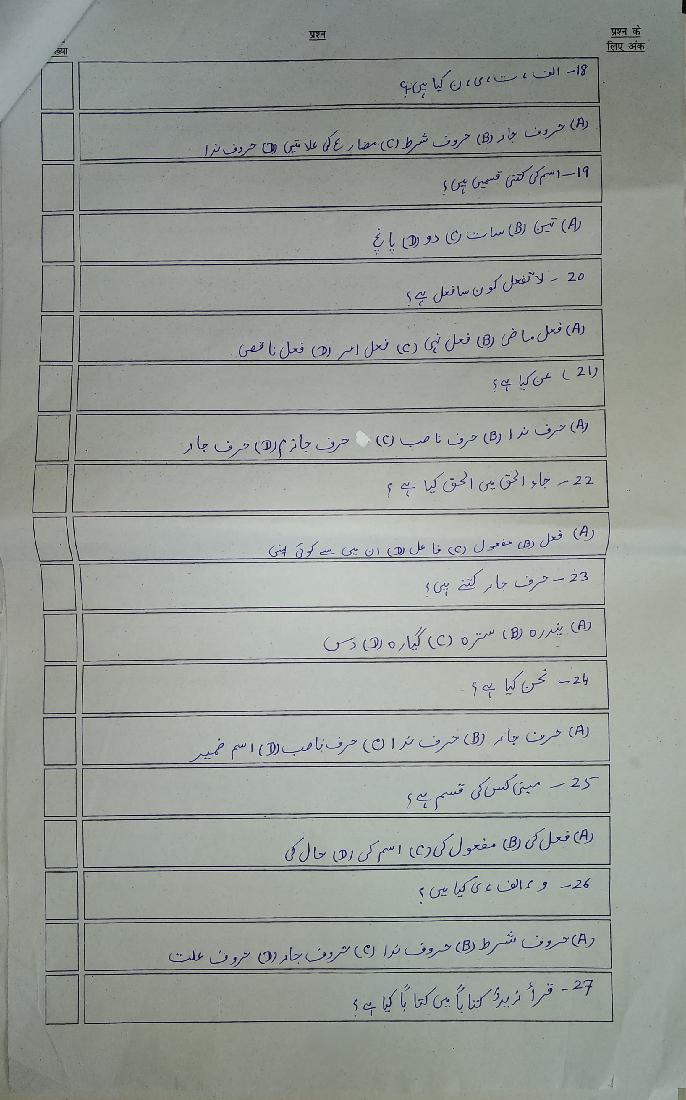 ख्या
प्रश्न
प्रश्न के
लिए अंक
18- الف ، ت ، ی ، ن کیا ہیں؟
(A) حروف جار (B) حروف شرط (C) مضارع کی علامتیں (D) حروف ندا
19- اسم کی کتنی قسمیں ہیں؟
(A) تین (B) سات (C) دو (D) پانچ
20 - لا تفعل کون سا فعل ہے؟
(A) فعل ماضی (B) فعل نہی (C) فعل امر (D) فعل ناقص
(21) عن کیا ہے؟
(A) حرف ندا (B) حرف ناصب (C) حرف جازم (D) حرف جار
22- جاء الحق میں الحق کیا ہے ؟
(A) فعل (B) مفعول (C) فاعل (D) ان میں سے کوئی نہیں
23- حرف جار کتنے ہیں؟
(A) پندرہ (B) سترہ (C) گیارہ (D) دس
24- نحن کیا ہے؟
(A) حرف جار (B) حرف ندا (C) حرف ناصب (D) اسم ضمیر
25 - مبنی کس کی قسم ہے؟
(A) فعل کی (B) مفعول کی (C) اسم کی (D) حال کی
26- و ، الف ، ی کیا ہیں؟
(A) حروف شرط (B) حروف ندا (C) حروف جار (D) حروف علت
27- قرأ زیدٌ کتاباً میں کتاباً کیا ہے؟